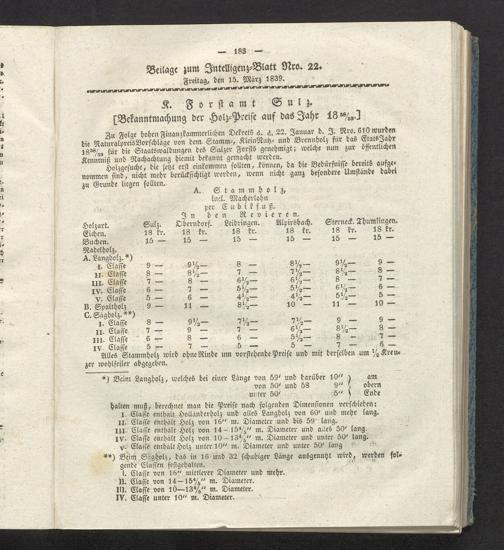 — 183 —
Beilage zum Intelligenz-Blatt Nro. 22.
Freitag, den 15. März 1839.
K. Forstamt Sulz.
[Bekanntmachung der Holz-Preise auf das Jahr 18³⁸/₃₉.]
Zu Folge hohen Finanzkammerlichen Dekrets d. d. 22. Januar d. J. Nro. 610 wurden
die NaturalpreisVorschläge von dem Stamm-, KleinNutz- und Brennholz für das EtatsJahr
18³⁸/₃₉ für die Staatswaldungen des Sulzer Forsts genehmigt; welche nun zur öffentlichen
Kenntniß und Nachachtung hiemit bekannt gemacht werden.
Holzgesuche, die jetzt erst einkommen sollten, können, da die Bedürfnisse bereits aufge-
nommen sind, nicht mehr berücksichtigt werden, wenn nicht ganz besondere Umstände dabei
zu Grunde liegen sollten.
A. Stammholz,
incl. Macherlohn
per Cubikfuß.
In den Revieren.
Holzart. Sulz. Oberndorf. Leidringen. Alpirsbach. Sterneck. Thumlingen.
Eichen. 18 kr. 18 kr. 18 kr. 18 kr. 18 kr. 18 kr.
Buchen. 15 — 15 — 15 — 15 — 15 — 15 —
Nadelholz.
A. Langholz.*)
I. Classe 9 — 9½ — 8 — 8½ — 9½ — 9 —
II. Classe 8 — 8½ — 7 — 7½ — 8½ — 8 —
III. Classe 7 — 8 — 6½ — 6½ — 8 — 7 —
IV. Classe 6 — 7 — 5½ — 5½ — 6½ — 6 —
V. Classe 5 — 6 — 4½ — 4½ — 5½ — 5 —
B. Spaltholz 9 — 11 — 8½ — 10 — 11 — 10 —
C. Sägholz.**)
I. Classe 8 — 9½ — 7½ — 7½ — 9 — 9 —
II. Classe 7 — 9 — 7 — 6½ — 8½ — 8 —
III. Classe 6 — 8 — 6 — 5½ — 8 — 7 —
IV. Classe 5 — 7 — 5 — 5 — 7 — 6 —
Alles Stammholz wird ohne Rinde um vorstehende Preise und mit derselben um ½ Kreu-
zer wohlfeiler abgegeben.
*) Beim Langholz, welches bei einer Länge von 59' und darüber 10" } am
von 50' und 58 9" } obern
unter 50' 5" } Ende
halten muß, berechnet man die Preise nach folgenden Dimensionen verschieden:
I. Classe enthält Holländerholz und alles Langholz von 60' und mehr lang.
II. Classe enthält Holz von 16" m. Diameter und bis 59' lang.
III. Classe enthält Holz von 14–15⁴/₅" m. Diameter und alles 50' lang.
IV. Classe enthält Holz von 10–13⁴/₅" m. Diameter und unter 50' lang.
V. Classe enthält Holz unter 10" m. Diameter und unter 50' lang.
**) Beim Sägholz, das in 16 und 32 schuhiger Länge ausgenutzt wird, werden fol-
gende Classen festgehalten.
I. Classe von 16" mittlerer Diameter und mehr.
II. Classe von 14–15⁴/₅" m. Diameter.
III. Classe von 10–13⁴/₅" m. Diameter.
IV. Classe unter 10" m. Diameter.